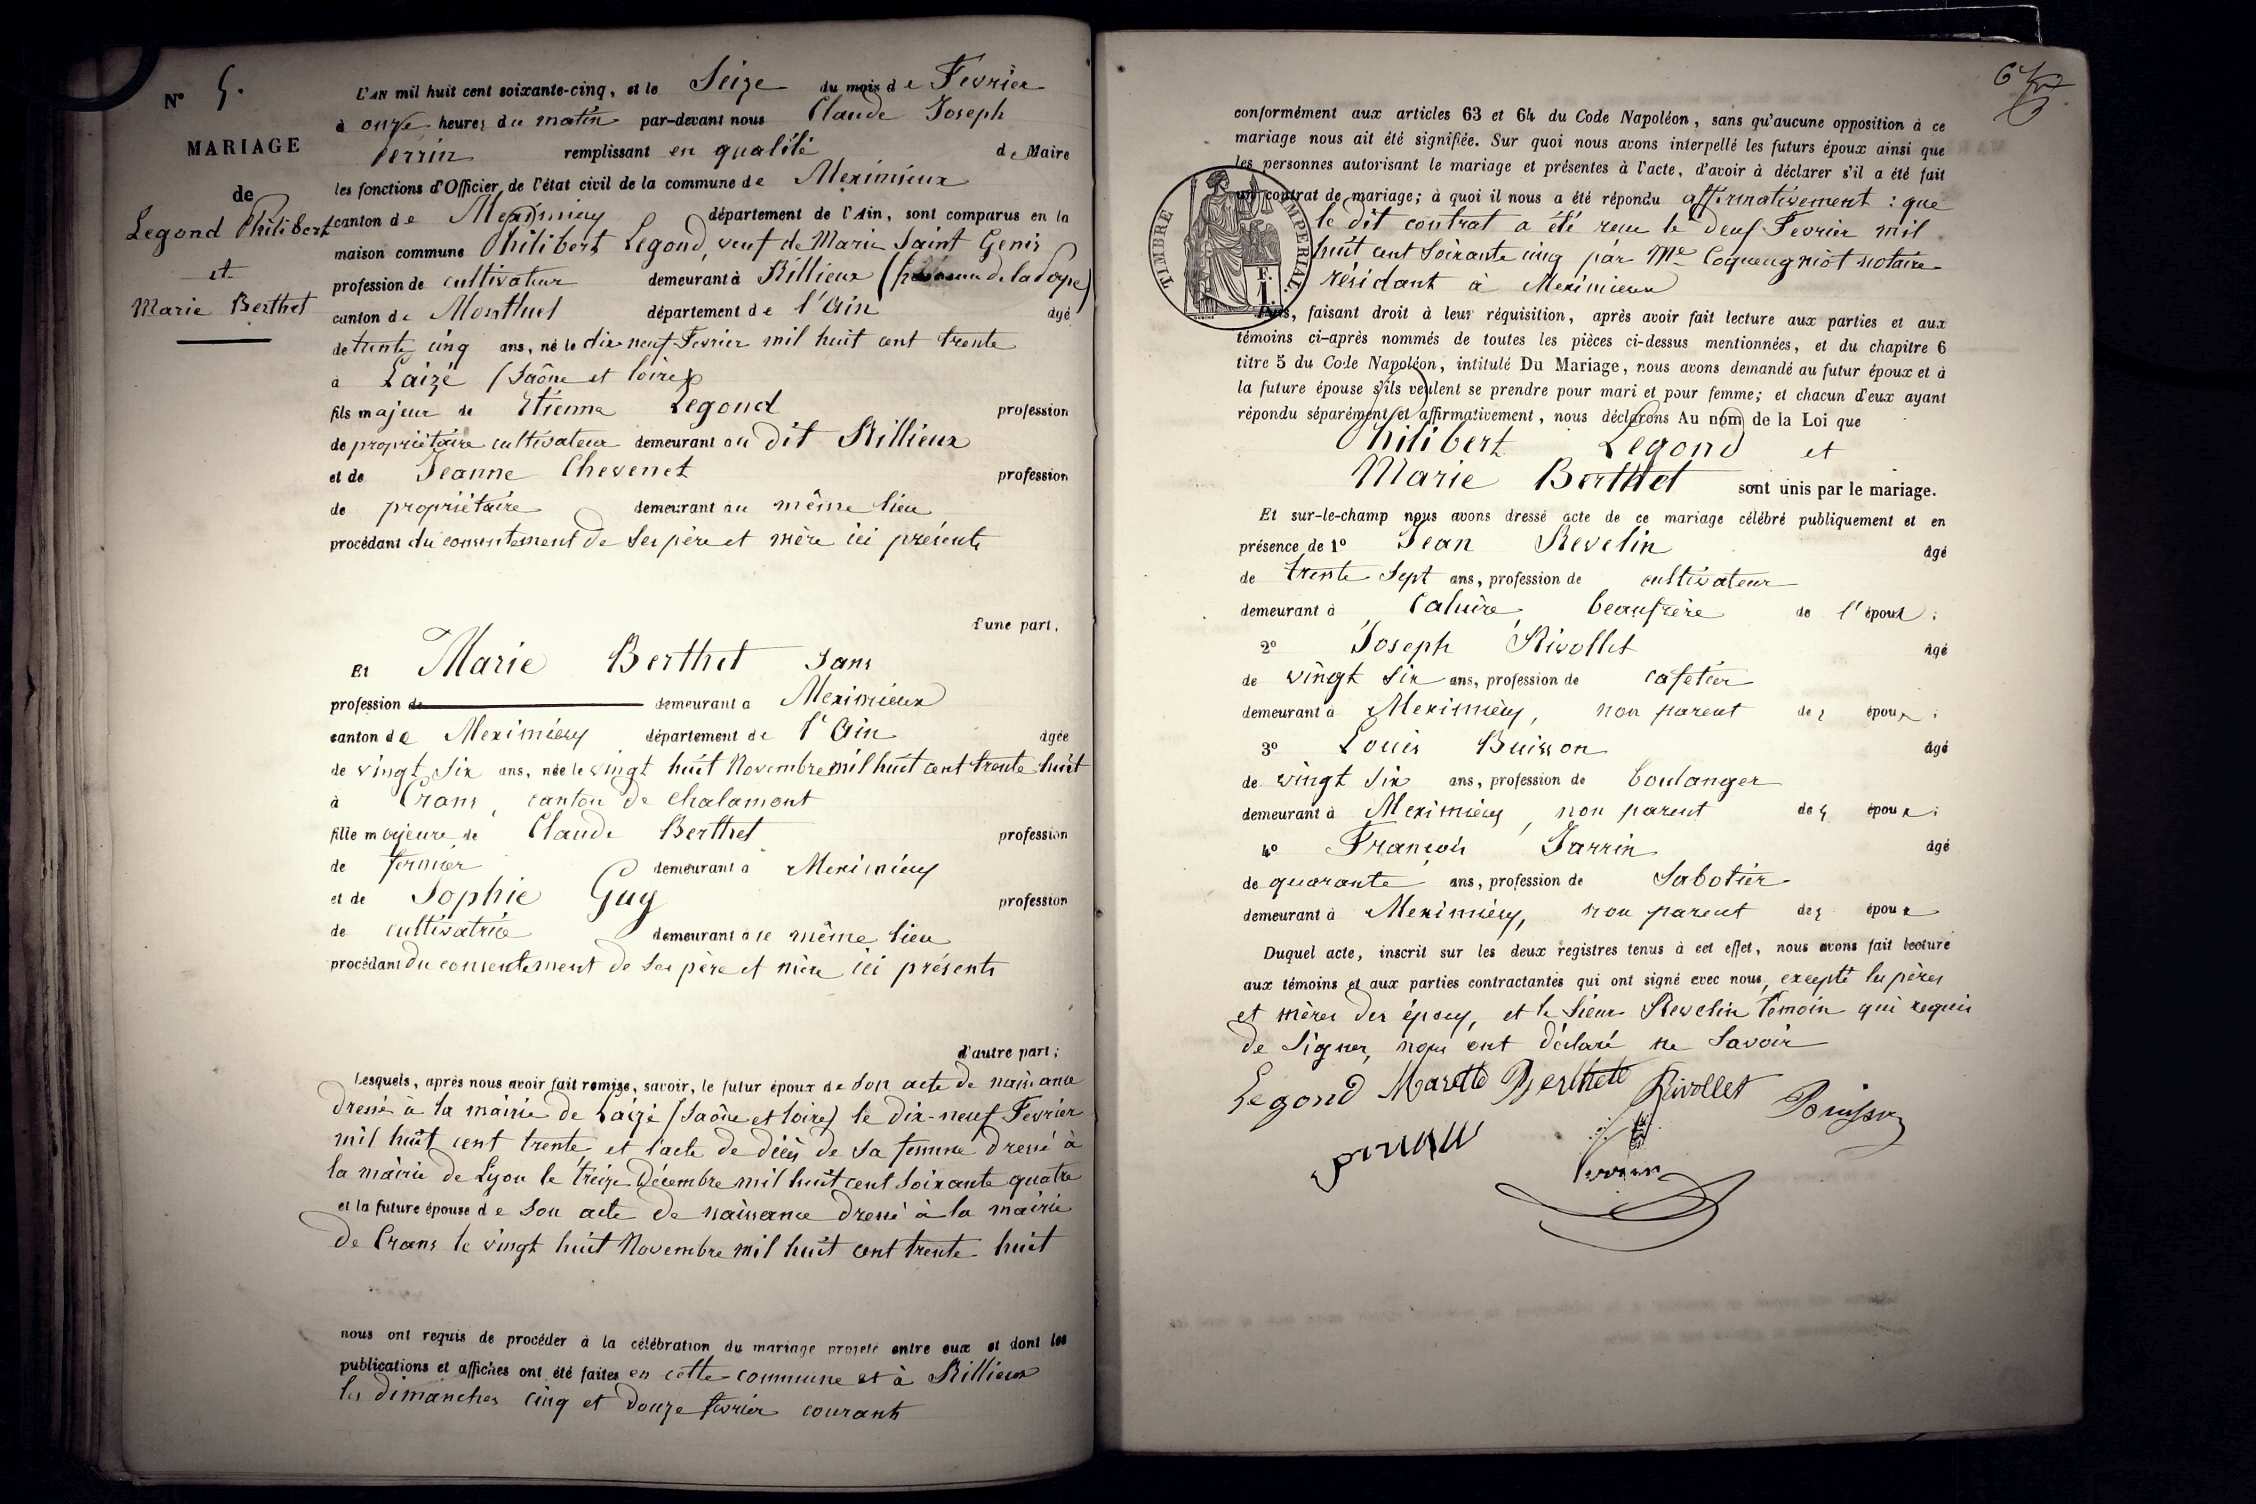 N° 5.
MARIAGE
de
Legond Philibert
et
Marie Berthet
L'AN mil huit cent soixante-cinq, et le Seize du mois de Fevrier
à onze heures du matin par-devant nous Claude Joseph
Perrin remplissant en qualité de Maire
les fonctions d'Officier de l'état civil de la commune de Meximieux
canton de Meximieux département de l'Ain, sont comparus en la
maison commune Philibert Legond, veuf de Marie Saint Genis
profession de cultivateur demeurant à Rillieux ( de la Pape)
canton de Montluel département de l'Ain âgé
de trente cinq ans, né le dix neuf Fevrier mil huit cent trente
à Laizé (Saône et Loire)
fils majeur de Etienne Legond profession
de propriétaire cultivateur demeurant au dit Rillieux
et de Jeanne Chevenet profession
de propriétaire demeurant au même lieu
procédant du consentement de ses père et mère ici présents
d'une part,
Et Marie Berthet sans
profession de demeurant à Meximieux
canton de Meximieux département de l'Ain âgée
de vingt six ans, née le vingt huit Novembre mil huit cent trente huit
à Crans, canton de Chalamont
fille majeure de Claude Berthet profession
de fermier demeurant à Meximieux
et de Sophie Guy profession
de cultivatrice demeurant à ce même lieu
procédant du consentement de ses père et mère ici présents
d'autre part;
Lesquels, après nous avoir fait remise, savoir, le futur époux de son acte de naissance
dressé à la mairie de Laizé (Saône et Loire) le dix-neuf Fevrier
mil huit cent trente, et l'acte de décès de sa femme dressé à
la mairie de Lyon le treize Décembre mil huit cent soixante quatre
et la future épouse de son acte de naissance dressé à la mairie
de Crans le vingt huit Novembre mil huit cent trente huit
nous ont requis de procéder à la célébration du mariage projeté entre eux et dont les
publications et affiches ont été faites en cette commune et à Rillieux
les dimanches cinq et douze fevrier courant
conformément aux articles 63 et 64 du Code Napoléon, sans qu'aucune opposition à ce
mariage nous ait été signifiée. Sur quoi nous avons interpellé les futurs époux ainsi que
les personnes autorisant le mariage et présentes à l'acte, d'avoir à déclarer s'il a été fait
un contrat de mariage; à quoi il nous a été répondu affirmativement : que
le dit contrat a été reçu le deux Fevrier mil
huit cent soixante cinq par Me Coqueugniot notaire
résidant à Meximieux
TIMBRE IMPERIAL.
1 F.
Puis, faisant droit à leur réquisition, après avoir fait lecture aux parties et aux
témoins ci-après nommés de toutes les pièces ci-dessus mentionnées, et du chapitre 6
titre 5 du Code Napoléon, intitulé Du Mariage, nous avons demandé au futur époux et à
la future épouse s'ils veulent se prendre pour mari et pour femme; et chacun d'eux ayant
répondu séparément et affirmativement, nous déclarons Au nom de la Loi que
Philibert Legond et
Marie Berthet sont unis par le mariage.
Et sur-le-champ nous avons dressé acte de ce mariage célébré publiquement et en
présence de 1° Jean Revelin âgé
de trente sept ans, profession de cultivateur
demeurant à Caluire, beaufrère de l'époux;
2° Joseph Rivollet âgé
de vingt six ans, profession de cafetier
demeurant à Meximieux, non parent des époux;
3° Louis Buisson âgé
de vingt six ans, profession de boulanger
demeurant à Meximieux, non parent des époux;
4° François Jarrin âgé
de quarante ans, profession de Sabotier
demeurant à Meximieux, non parent des époux
Duquel acte, inscrit sur les deux registres tenus à cet effet, nous avons fait lecture
aux témoins et aux parties contractantes qui ont signé avec nous, excepté les pères
et mères des époux, et le sieur Revelin témoin qui requis
de signer, nous ont déclaré ne savoir
Legond Mariette Berthete Rivollet Buisson
Perrin